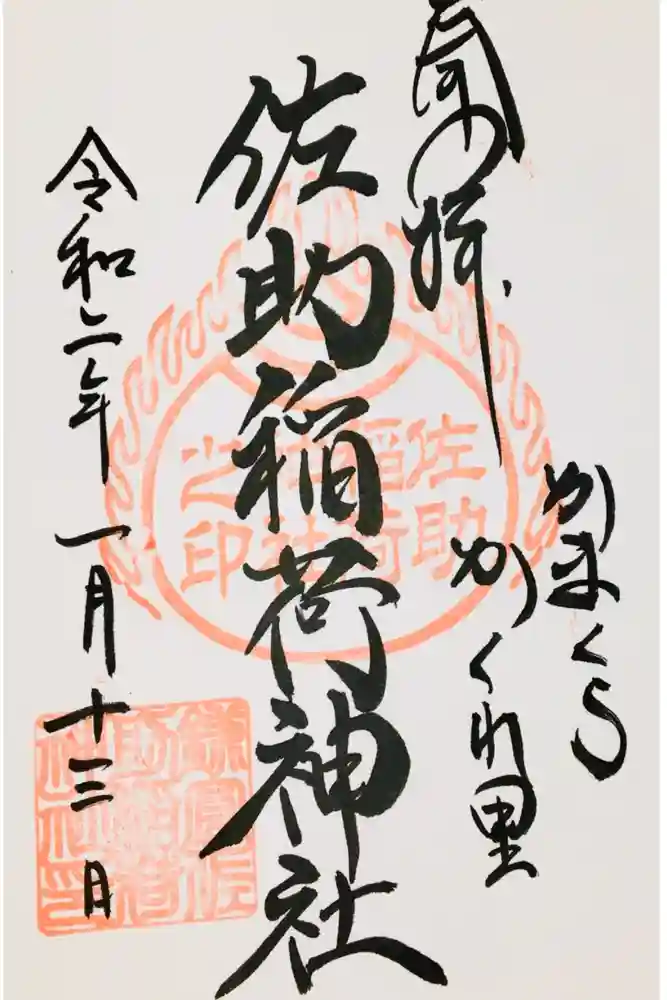 奉拝
かまくら
かくれ里
佐助稲荷神社
令和二年 一月十三日
佐助
稲荷
社
之印